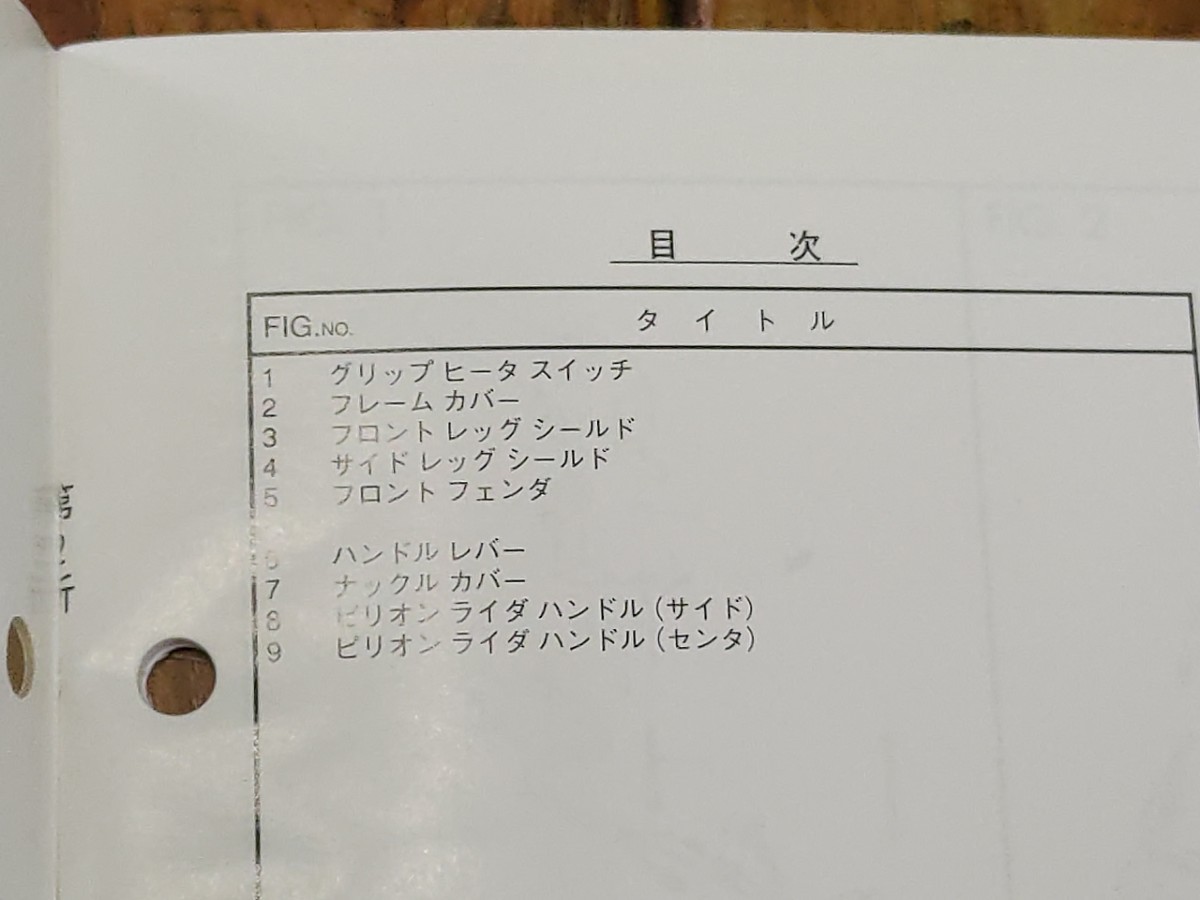 目 次
FIG.NO. タイトル
1 グリップ ヒータ スイッチ
2 フレーム カバー
3 フロント レッグ シールド
4 サイド レッグ シールド
5 フロント フェンダ
6 ハンドル レバー
7 ナックル カバー
8 ピリオン ライダ ハンドル (サイド)
9 ピリオン ライダ ハンドル (センタ)